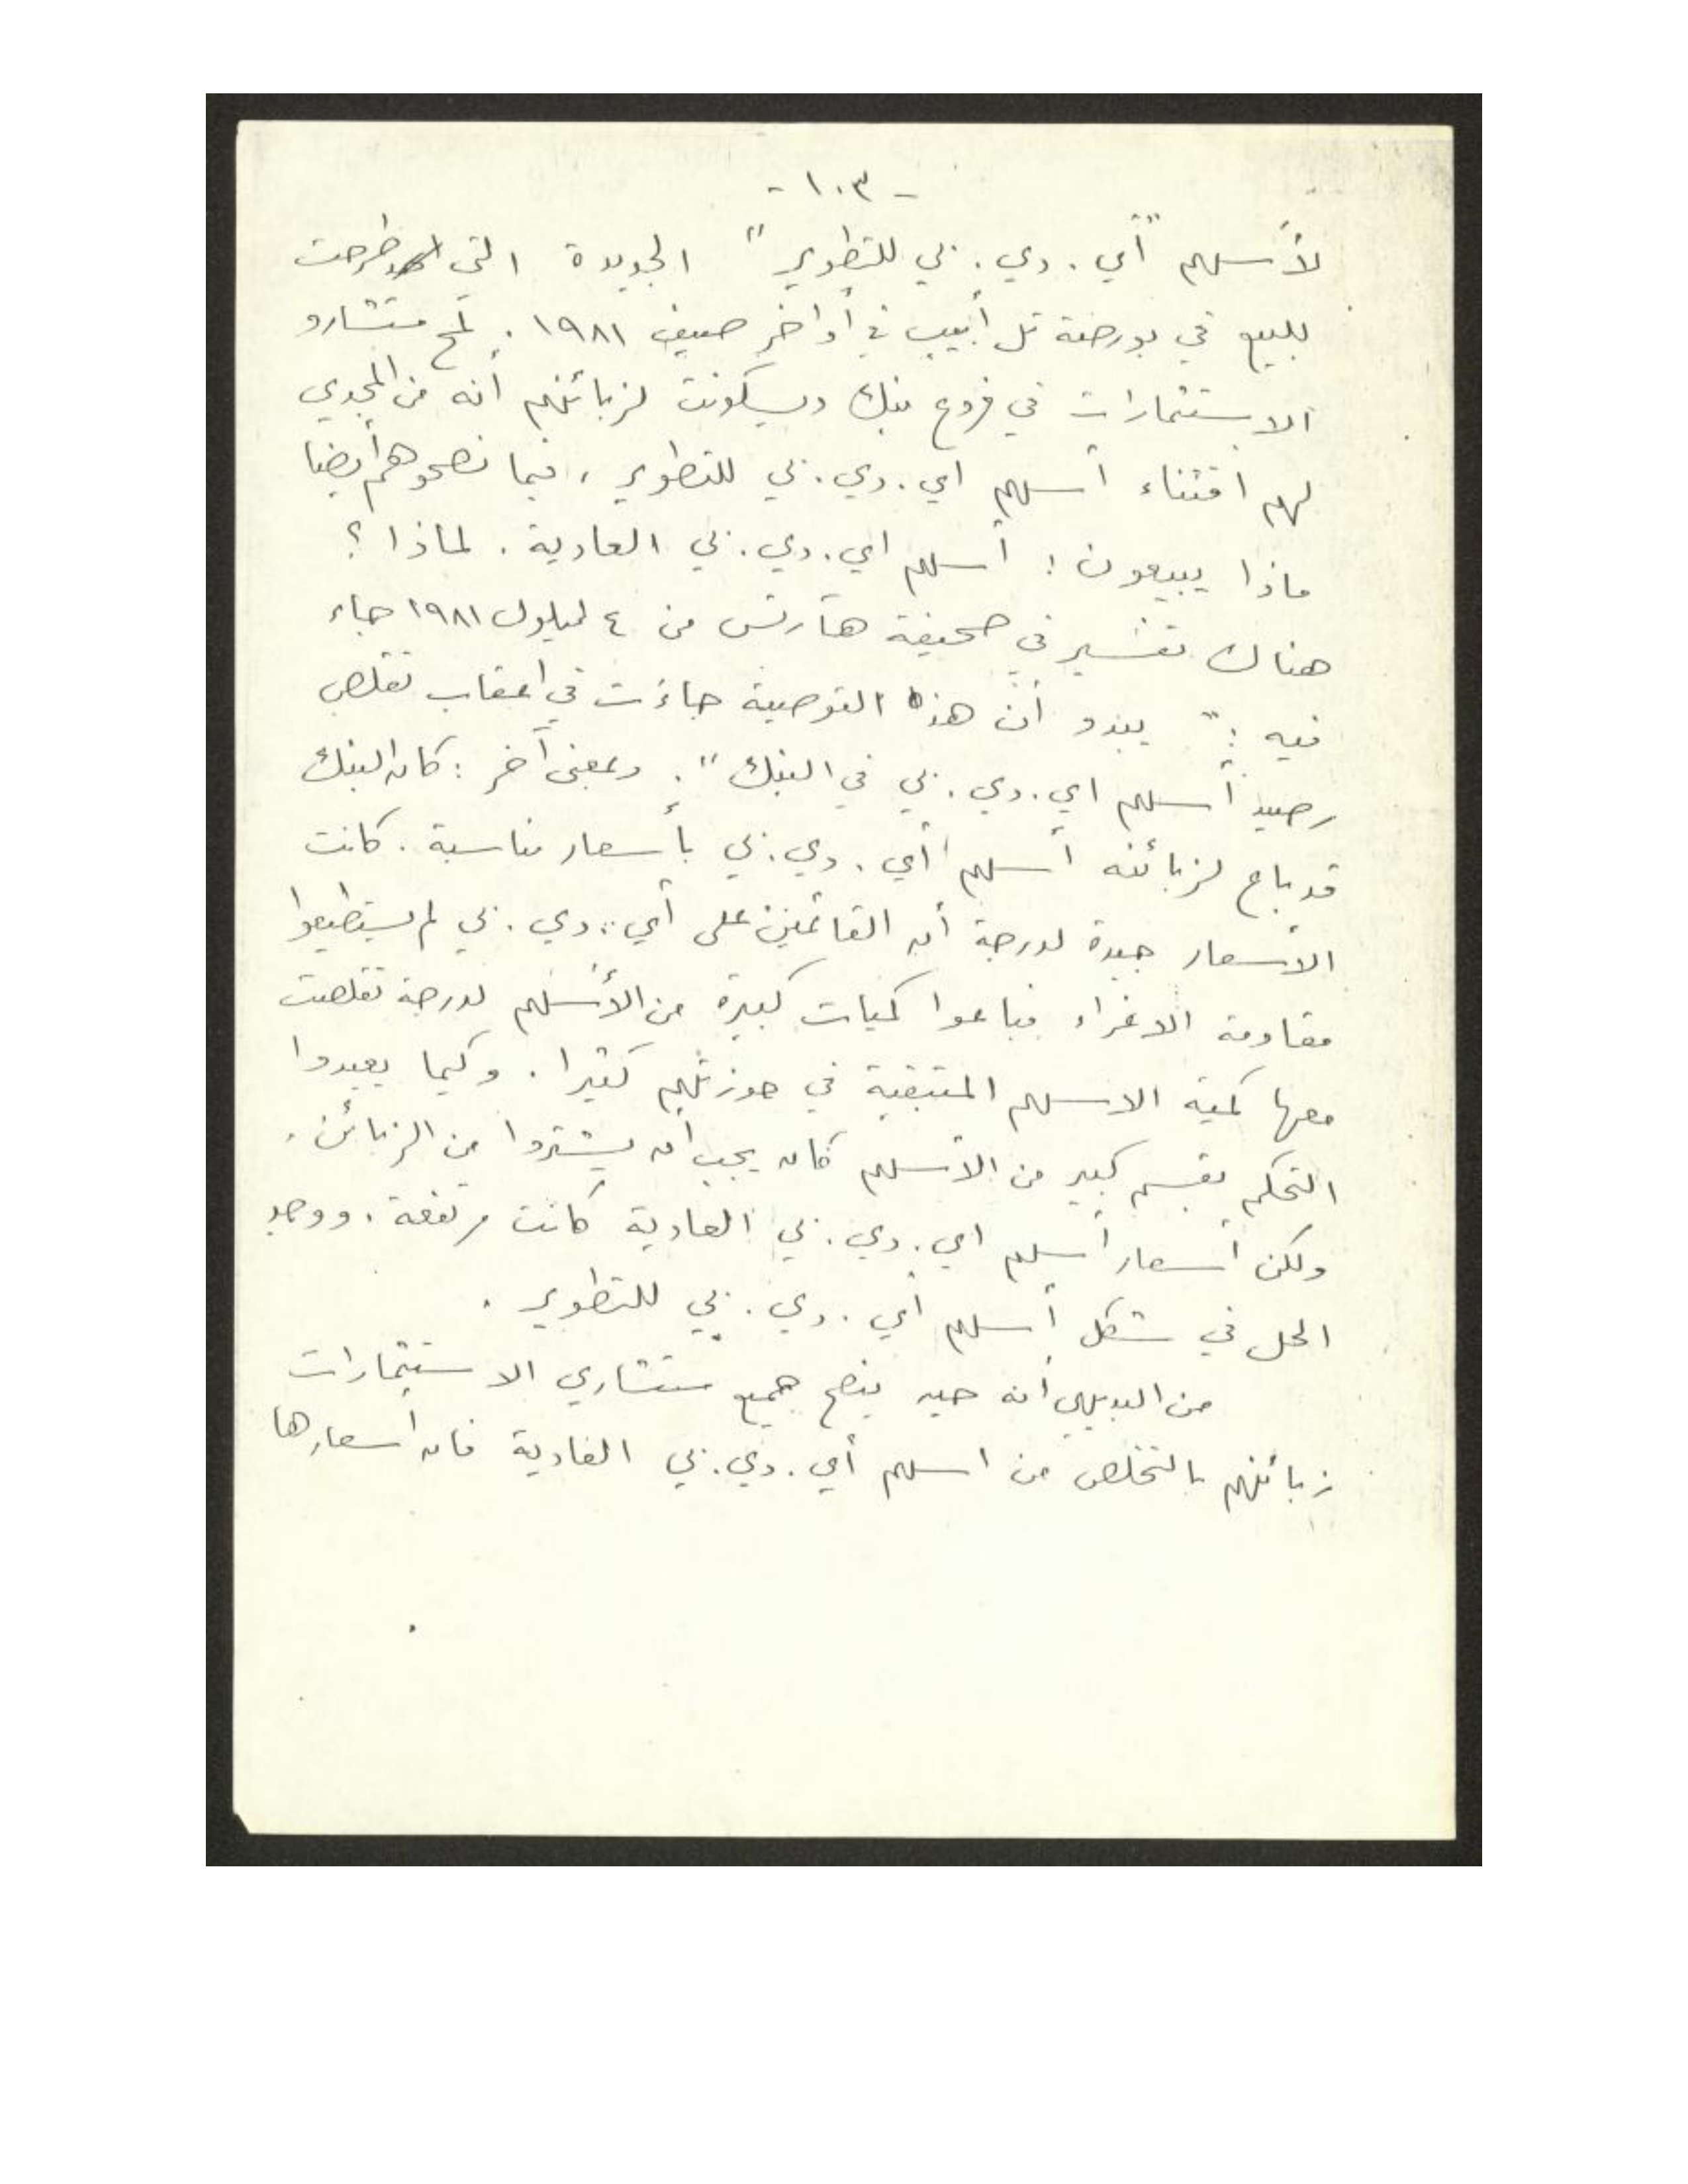 - ١٠٣ -
لأسهم "أي. دي. بي للتطوير" الجديدة التي طرحت
للبيع في بورصة تل أبيب في أواخر صيف ١٩٨١. لمح مستشارو
الاستثمارات في فروع بنك ديسكونت لزبائنهم أنه من المجدي
لهم اقتناء أسهم اي. دي. بي للتطوير، فيما نصحوهم أيضا
ماذا يبيعون: أسهم اي. دي. بي العادية. لماذا؟
هناك تفسير في صحيفة هآرتس من ٤ ايلول ١٩٨١ جاء
فيه: "يبدو أن هذه التوصية جاءت في اعقاب تقلص
رصيد أسهم اي. دي. بي في البنك". وبمعنى آخر: كان البنك
قد باع لزبائنه أسهم أي. دي. بي بأسعار مناسبة. كانت
الأسعار جيدة لدرجة أن القائمين على أي. دي. بي لم يستطيعوا
مقاومة الاغراء فباعوا كميات كبيرة من الأسهم لدرجة تقلصت
معها كمية الاسهم المتبقية في حوزتهم كثيرا. وكيما يعيدوا
التحكم بقسم كبير من الأسهم كان يجب أن يشتروا من الزبائن.
ولكن أسعار أسهم اي. دي. بي العادية كانت مرتفعة. ووجد
الحل في شكل أسهم أي. دي. بي للتطوير.
من البديهي أنه حين ينصح جميع مستشاري الاستثمارات
زبائنهم بالتخلص من اسهم أي. دي. بي العادية فان أسعارها